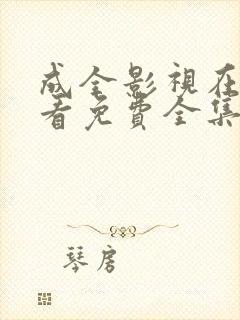 成全影視在
看免費全集
琴房